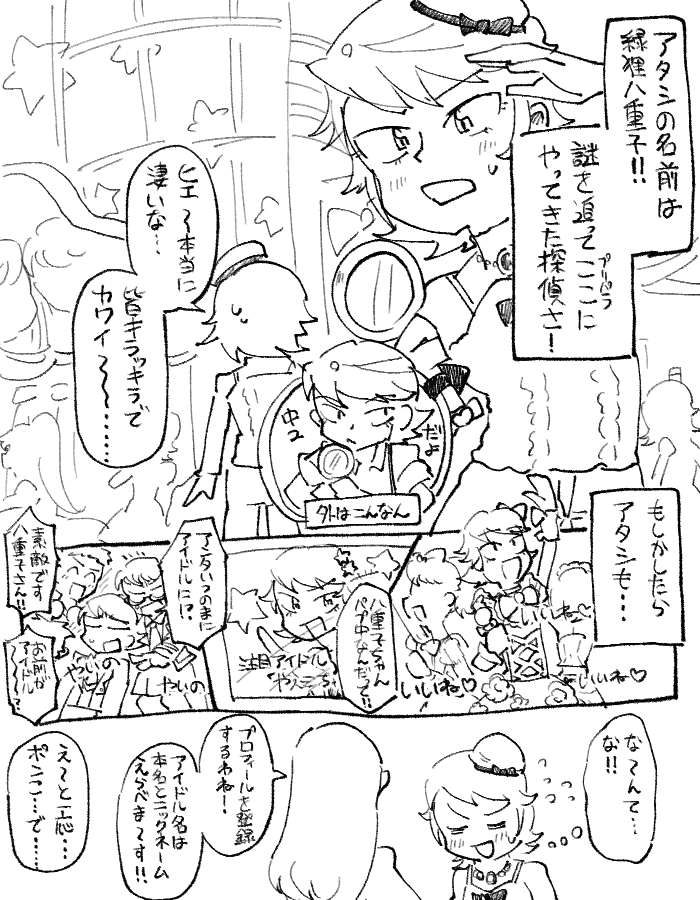 アタシの名前は
緑狸八重子!!
謎を追ってここに
プリパラ
やってきた探偵さ!
ヒエ〜本当に
凄いな…
皆キラッキラで
カワイ〜〜〜……
中2
だよ
外はこんなん
もしかしたら
アタシも…
いいね♡
いいね♡
いいね♡
八重子ちゃん
パプ中なんだって!!
注目アイドル
やえこ
アンタいつのまに
アイドルに!?
素敵です
八重子さん!!
お前が
アイドル
〜〜〜!?
やいの
やいの
な〜んて…
な!!
プロフィールを登録
するわね!
アイドル名は
本名とニックネーム
えらべま〜す!!
え〜と一応…
ポンこ…で……